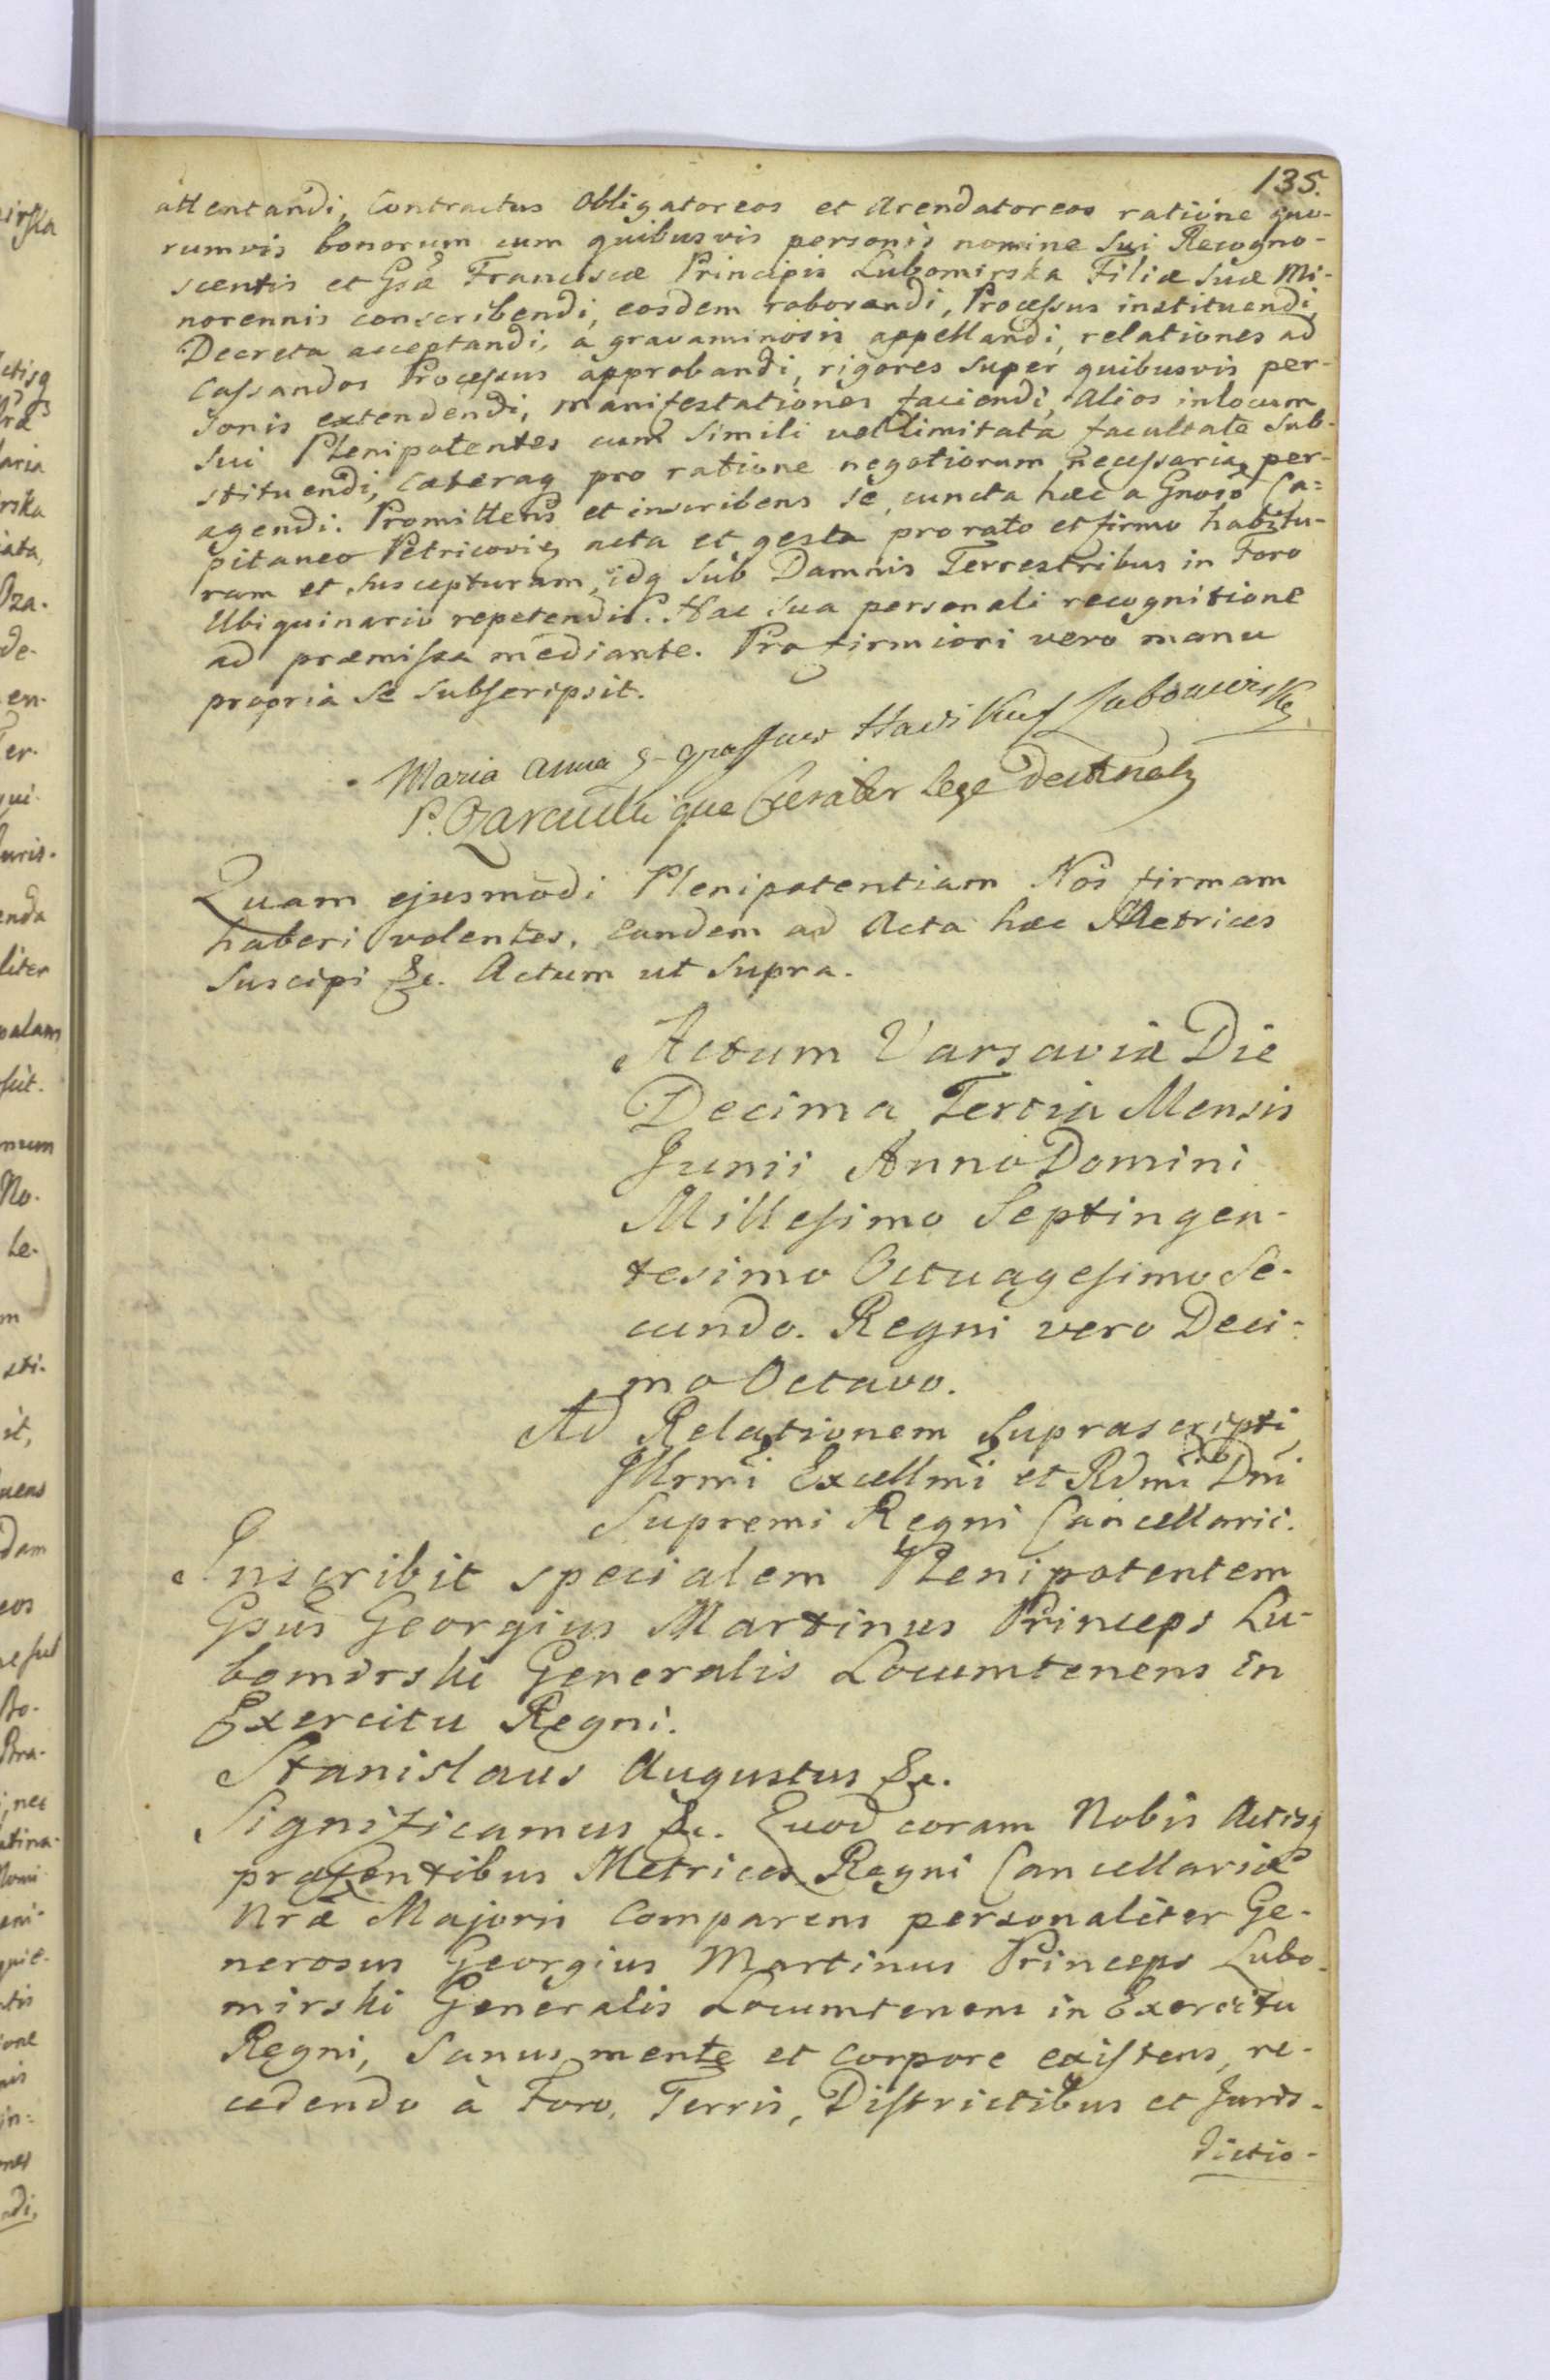 135.
attentandi, Contractus Obligatoreos et Arendatoreos ratione quo-
rumvis bonorum cum quibusvis personis nomine Sui Recogno-
scentis et Gsæ Franciscæ Principis Lubomirska Filiæ Suæ Mi-
norennis conscribendi, eosdem roborandi, Processus instituendi,
Decreta acceptandi, a gravaminosis appellandi, relationes ad
Cassandos Processus approbandi, rigores super quibusvis per-
sonis extendendi, manifestationes faciendi, Alios in locum
sui Plenipotentes cum simili vel limitata facultate sub-
stituendi, cæteraq pro ratione negotiorum necessaria per-
agendi. Promittens et inscribens se, cuncta hæc a Gnoso Ca=
pitaneo Petricovien acta et gesta pro rato et firmo habitu-
ram et suscepturam, idq sub Damnis Terrestribus in Foro
Ubiquinario repetendis. Hac sua personali recognitione
ad præmissa mediante. Pro firmiori vero manu
propria se subscripsit.
Maria Anna
P. Ozarcuille que Lege
Quam ejusmodi Plenipotentiam Nos firmam
haberi volentes, eandem ad Acta hæc Metrices
Suscipi &c. Actum ut supra.
Actum Varsaviæ Die
Decima Tertia Mensis
Junii Anno Domini
Millesimo Septingen-
tesimo Octuagesimo Se-
cundo. Regni vero Deci-
mo Octavo.
Ad Relationem Suprascripti
Illrmi Excellmi et Rdmi Dni
Supremi Regni Cancellarii.
Inscribit specialem Plenipotentem
Gsus Georgius Martinus Princeps Lu-
bomirski Generalis Locumtenens in
Exercitu Regni.
Stanislaus Augustus &c.
Significamus &c. Quod coram Nobis Actisq
præsentibus Metrices Regni Cancellariæ
Nræ Majoris Comparens personaliter Ge-
nerosus Georgius Martinus Princeps Lubo-
mirski Generalis Locumtenens in Exercitu
Regni, Sanus mente et corpore existens, re-
cedendo à Foro, Terris, Districtibus et Juris-
dictio-